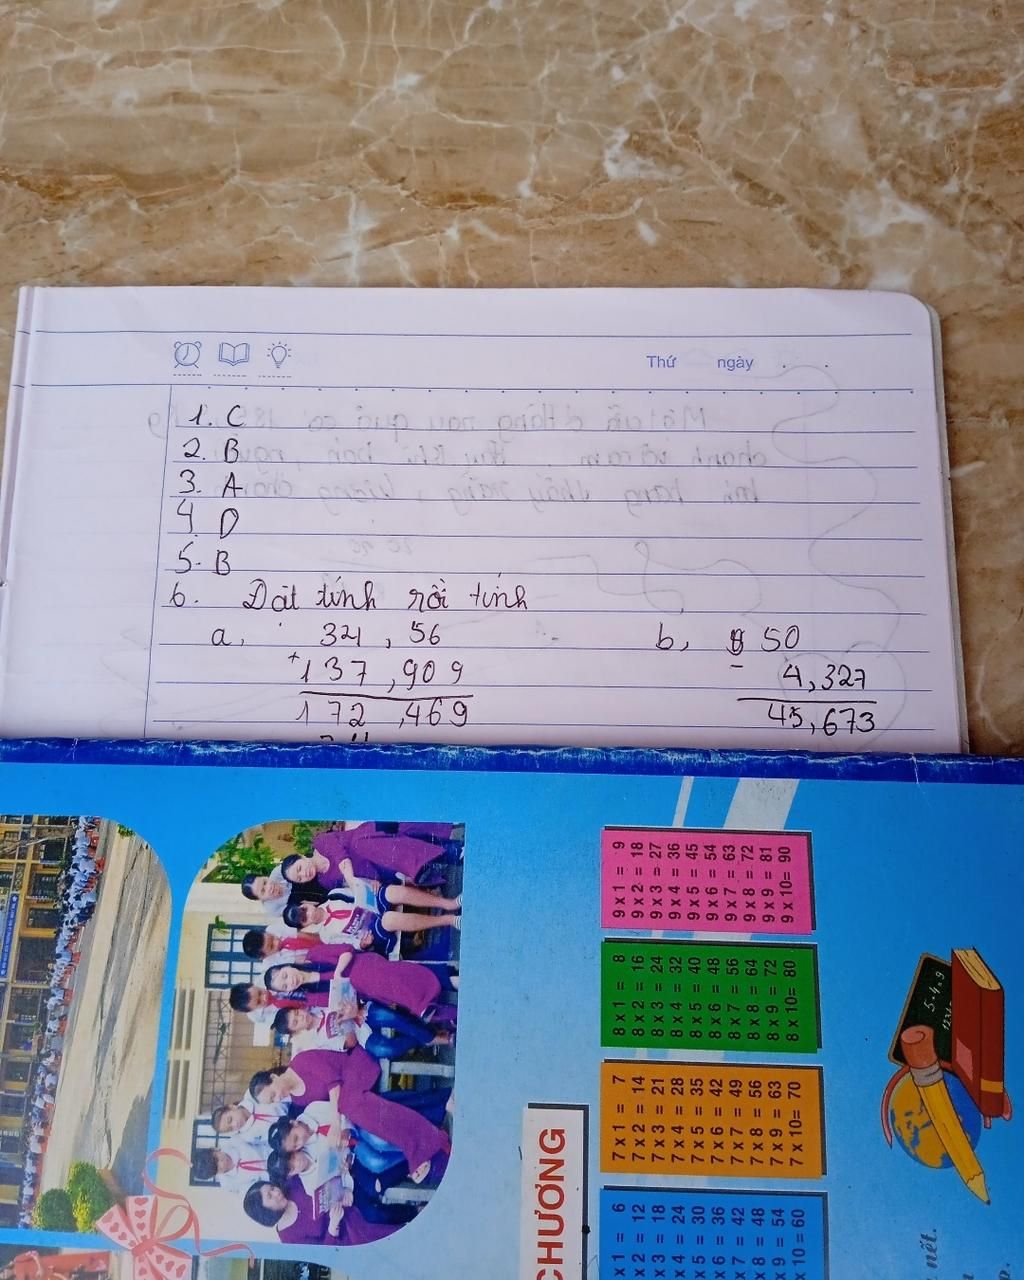 Thứ ngày
1. C
2. B
3. A
4 D
5. B
6. Đặt tính rồi tính
a, 34,56 b, 50
+137,909 - 4,327
172,469 45,673
9 x 1 = 9
9 x 2 = 18
9 x 3 = 27
9 x 4 = 36
9 x 5 = 45
9 x 6 = 54
9 x 7 = 63
9 x 8 = 72
9 x 9 = 81
9 x 10= 90
8 x 1 = 8
8 x 2 = 16
8 x 3 = 24
8 x 4 = 32
8 x 5 = 40
8 x 6 = 48
8 x 7 = 56
8 x 8 = 64
8 x 9 = 72
8 x 10= 80
7 x 1 = 7
7 x 2 = 14
7 x 3 = 21
7 x 4 = 28
7 x 5 = 35
7 x 6 = 42
7 x 7 = 49
7 x 8 = 56
7 x 9 = 63
7 x 10= 70
x 1 = 6
x 2 = 12
x 3 = 18
x 4 = 24
x 5 = 30
x 6 = 36
x 7 = 42
x 8 = 48
x 9 = 54
x 10 = 60
CHƯƠNG
nết.